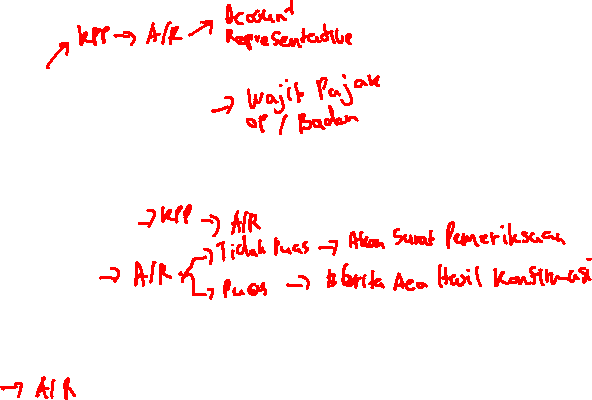 KPP → A/R → Account
Representative
→ Wajib Pajak
OP / Badan
→ KPP → A/R
→ A/R
Tidak Puas → Akan Surat Pemeriksaan
→ Puas → Berita Aca Hasil Konfirmasi
→ A/R